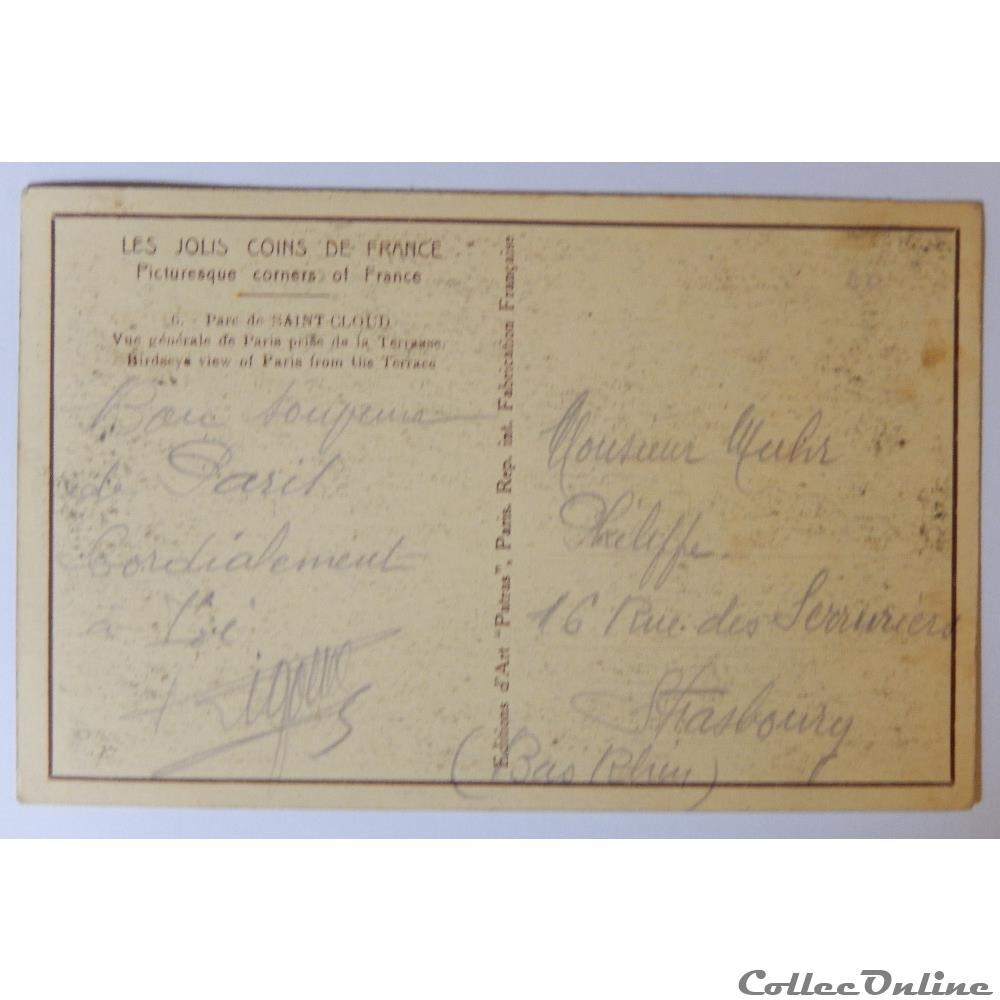 LES JOLIS COINS DE FRANCE
Picturesque corners of France
6. - Parc de SAINT-CLOUD
Vue générale de Paris prise de la Terrasse.
Birdseye view of Paris from the Terrace
de Paris
Cordialement
à
Editions d'Art "Patras", Paris. Rep. int. Fabrication Française
Monsieur Muhr
Philippe
16 Rue des Serruriers
Strasbourg
(Bas Rhin)
CollecOnline